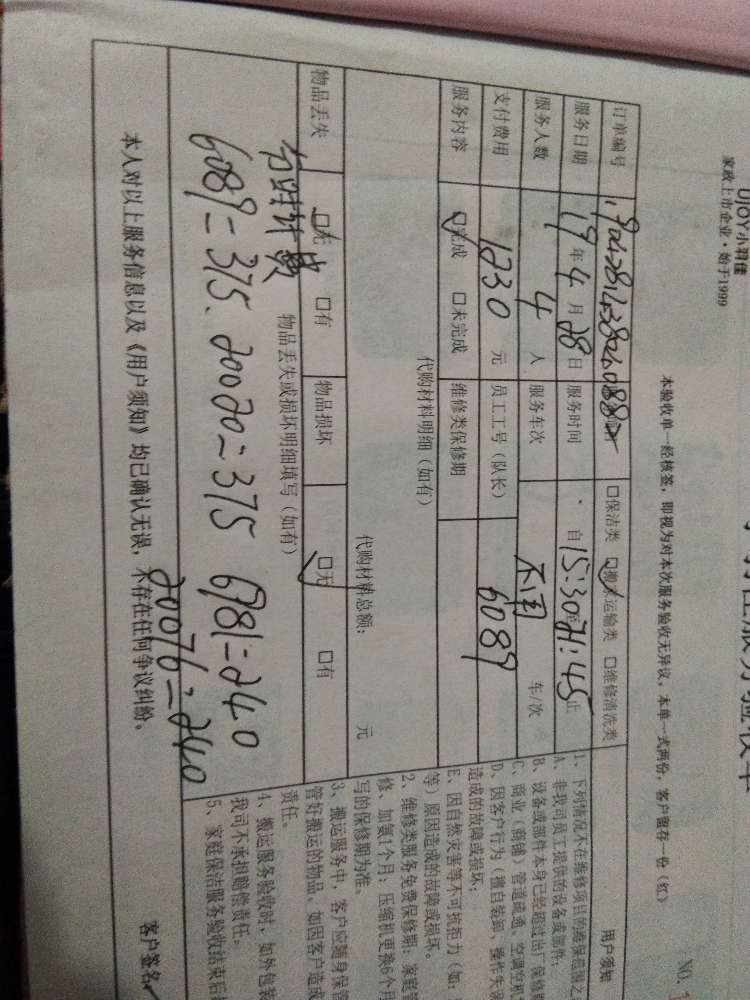 UJOY小羽佳
家政上市企业·始于1999
NO.
本验收单一经核签，即视为对本次服务验收无异议，本单一式两份，客户留存一份（红）
订单编号
□保洁类 □搬家运输类 □维修清洗类
服务日期 19年4月28日 服务时间 自15:30至21:45止
服务人数 4人 服务车次 不用 车/次
支付费用 1230元 员工工号（队长） 6089
服务内容 □完成 □未完成 维修类保修期
代购材料明细（如有）
代购材料总额： 元
物品丢失 □无 □有 物品损坏 □无 □有
物品丢失或损坏明细填写（如有）
6089=375、20020=375 6981=240
20076=240
本人对以上服务信息以及《用户须知》均已确认无误，不存在任何争议纠纷。
用户须知
1、下列情况不在维修项目的维保范围之
A、非我司员工提供的设备或部件；
B、设备或部件本身已经超过出厂保修
C、商业（商铺）管道疏通、空调空
D、因客户行为（擅自装卸、操作失误
造成的故障或损坏；
E、因自然灾害等不可抗拒力（如：
等）原因造成的故障或损坏。
2、维修类服务免费保修期：家庭管
修、加氨1个月；压缩机更换6个月
写的保修期为准。
3、搬运服务中，客户应随身保管
管好搬运的物品。如因客户造成
责任。
4、搬运服务验收时，如外包装
我司不承担赔偿责任。
5、家庭保洁服务验收结束后
客户签名：